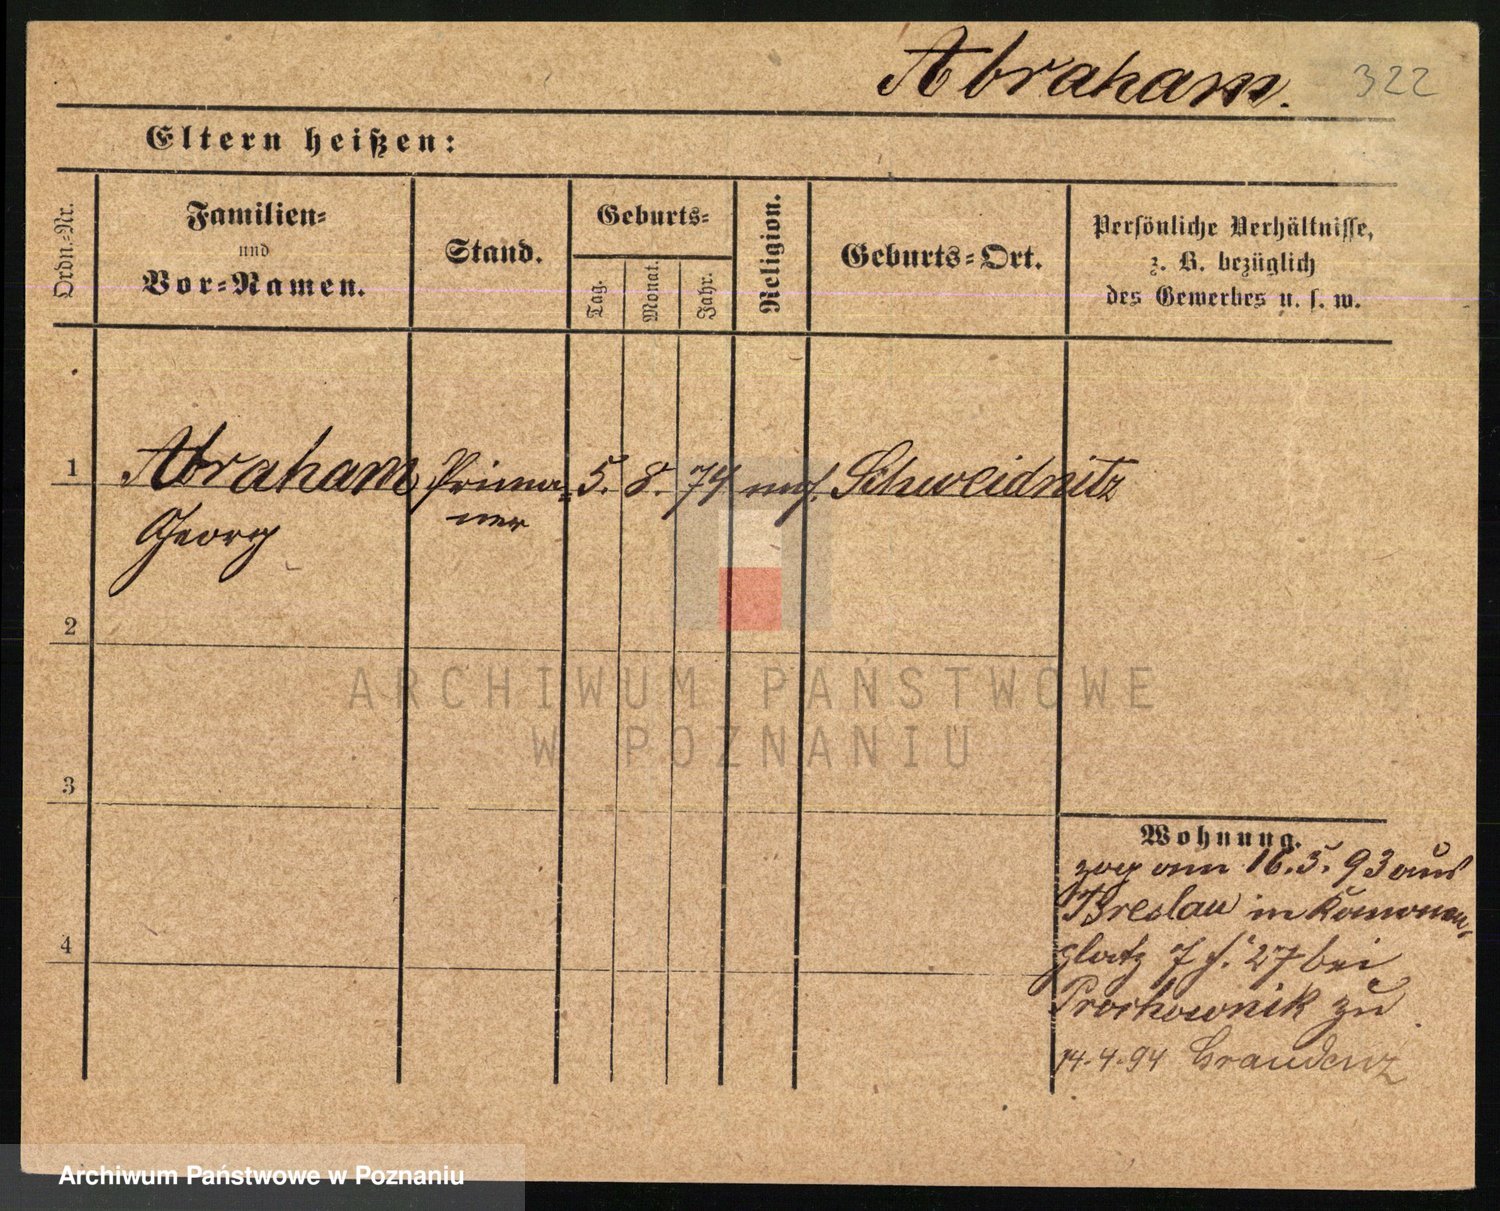 Abraham. 322
Eltern heißen:
Ordn.-Nr.
Familien-
und
Vor-Namen.
Stand.
Geburts-
Tag.
Monat.
Jahr.
Religion.
Geburts-Ort.
Persönliche Verhältnisse,
z. B. bezüglich
des Gewerbes u. s. w.
1 Abraham Prima- 5. 8. 74 mos. Schweidnitz
Georg ner
2
3
4
Wohnung.
zog am 16.5.93 aus
Breslau in
platz 7 27 bei
Prochownik zu
14.4.94 Graudenz
ARCHIWUM PAŃSTWOWE
W POZNANIU
Archiwum Państwowe w Poznaniu